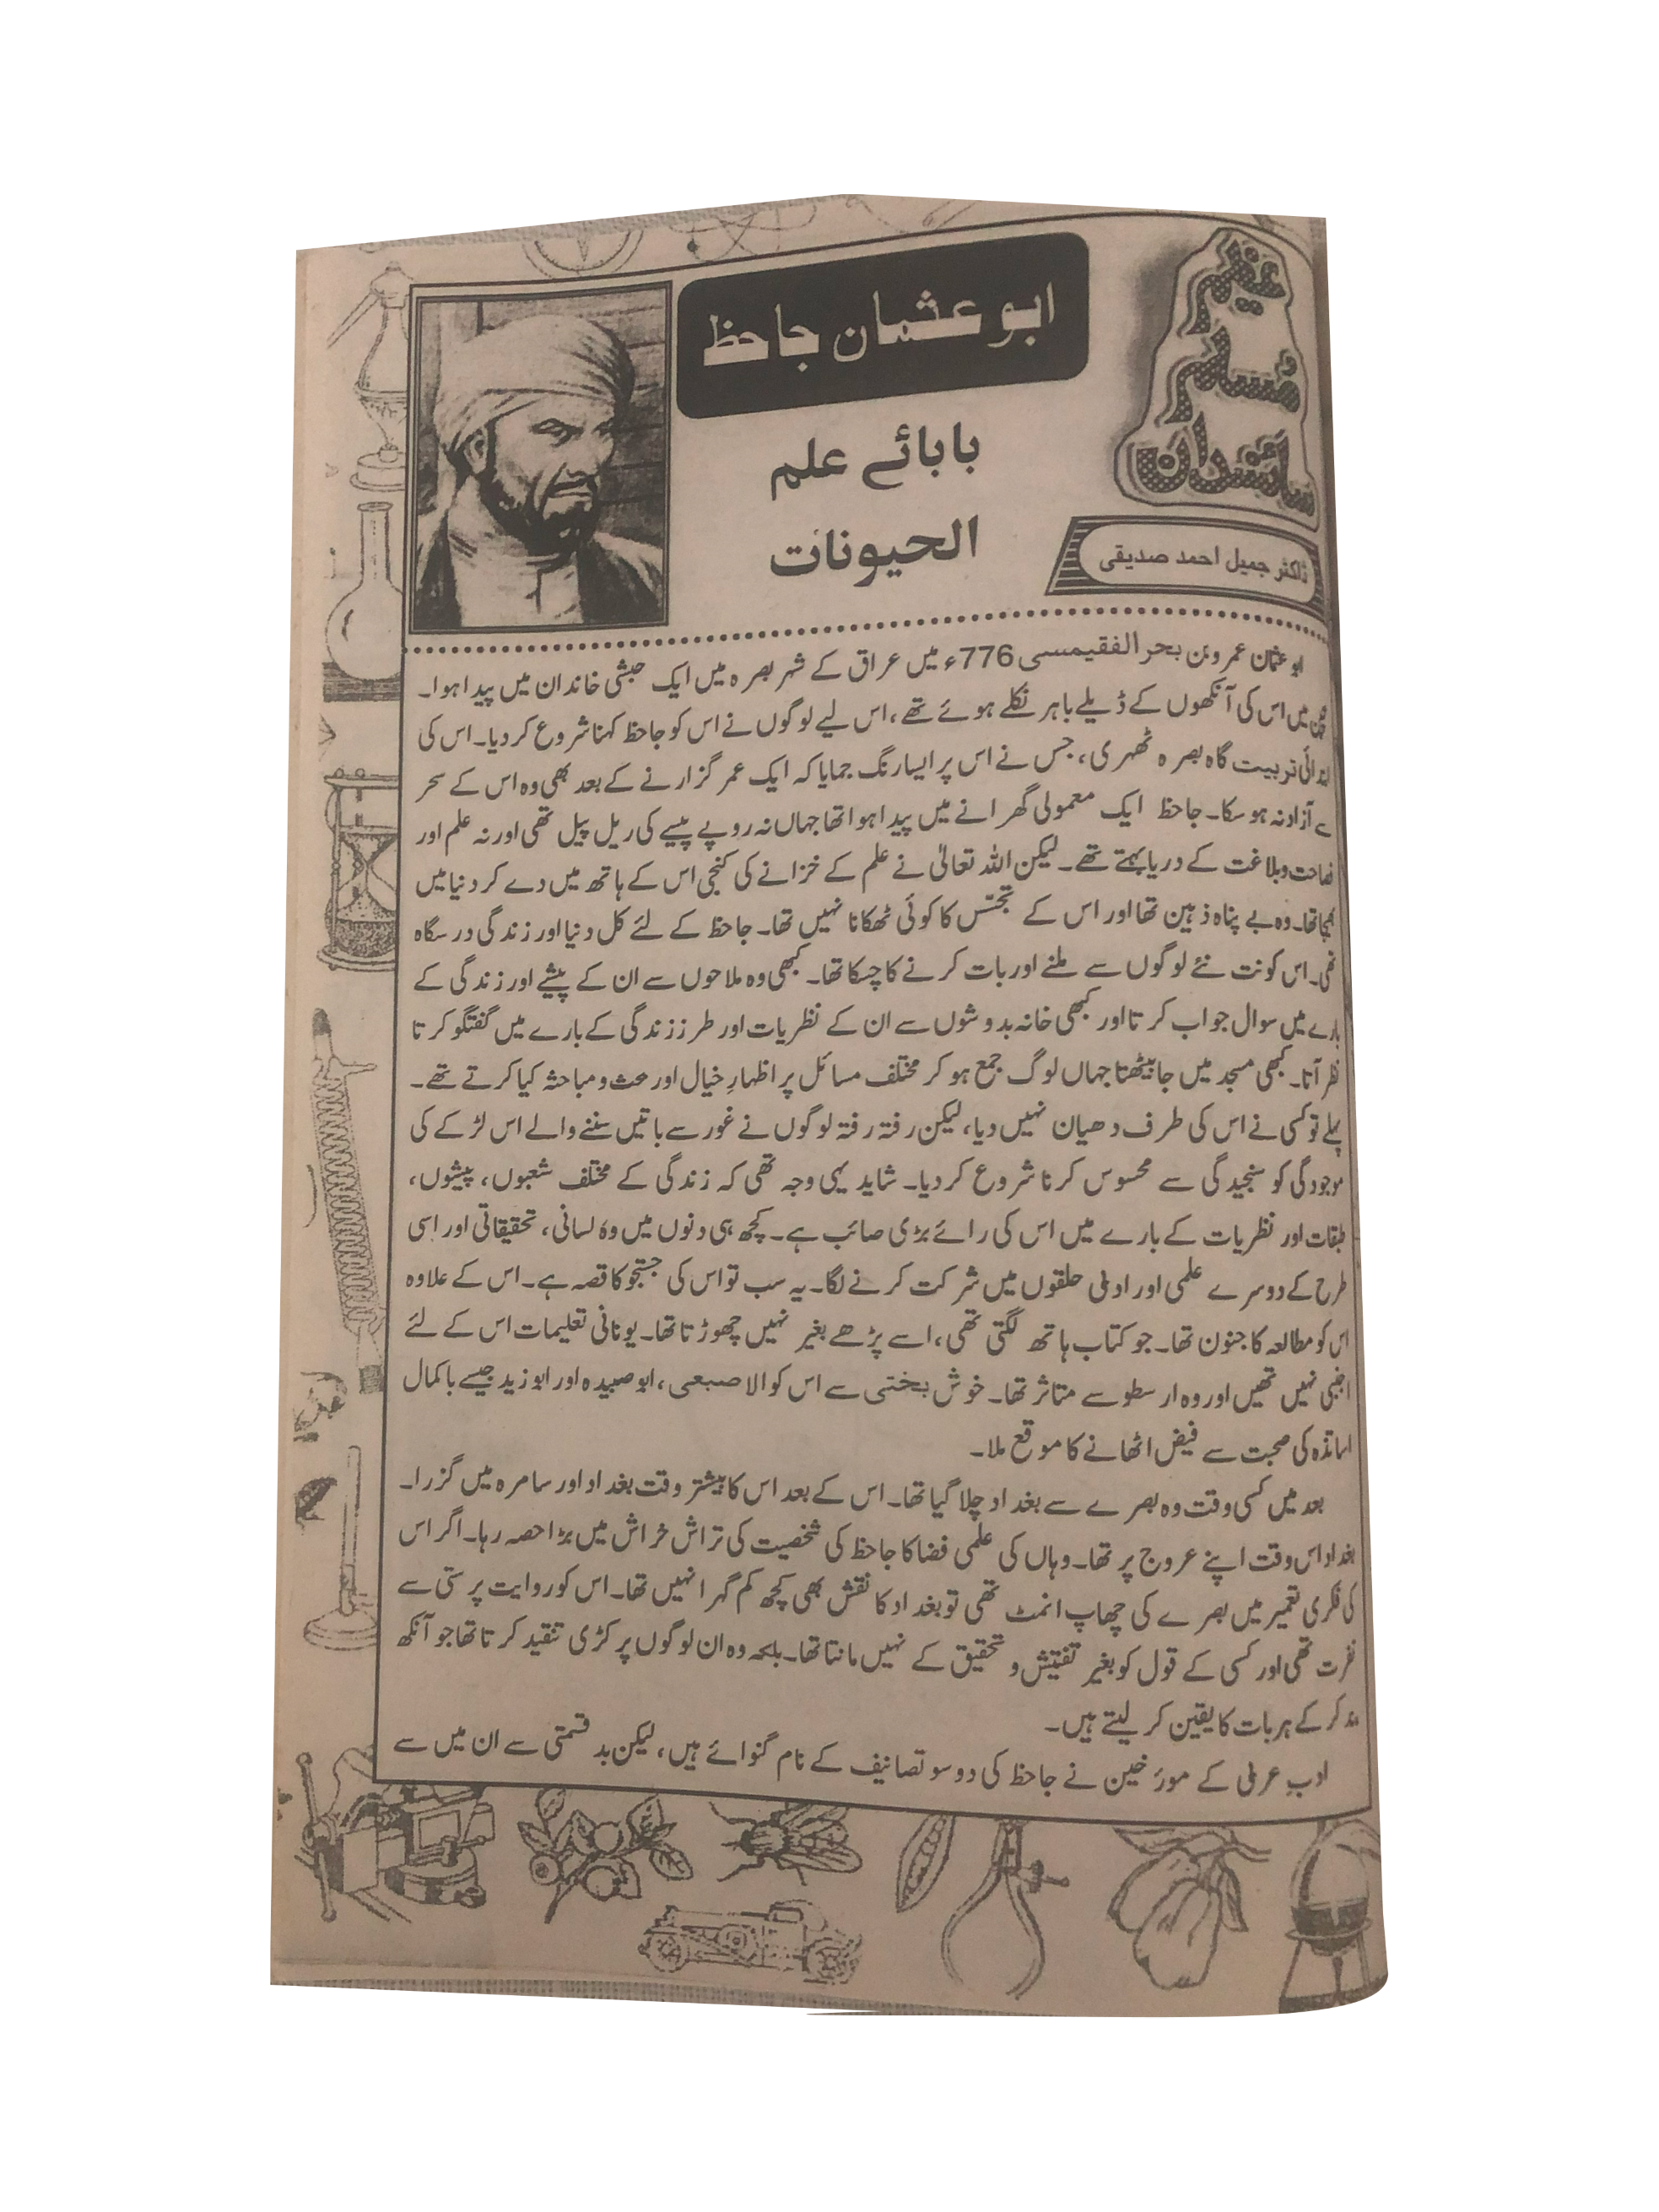 عظیم
مسلم
سائنسدان
ابو عثمان جاحظ
بابائے علم
الحیونات
ڈاکٹر جمیل احمد صدیقی
ابو عثمان عمرو بن بحر الفقیمسی 776ء میں عراق کے شہر بصرہ میں ایک حبشی خاندان میں پیدا ہوا۔
میں اس کی آنکھوں کے ڈیلے باہر نکلے ہوئے تھے، اس لیے لوگوں نے اس کو جاحظ کہنا شروع کر دیا۔ اس کی
ابتدائی تربیت گاہ بصرہ ٹھہری، جس نے اس پر ایسا رنگ جمایا کہ ایک عمر گزارنے کے بعد بھی وہ اس کے سحر
سے آزاد نہ ہو سکا۔ جاحظ ایک معمولی گھرانے میں پیدا ہوا تھا جہاں نہ روپے پیسے کی ریل پیل تھی اور نہ علم اور
فصاحت و بلاغت کے دریا بہتے تھے۔ لیکن اللہ تعالیٰ نے علم کے خزانے کی کنجی اس کے ہاتھ میں دے کر دنیا میں
بھیجا تھا۔ وہ بے پناہ ذہین تھا اور اس کے تجسّس کا کوئی ٹھکانا نہیں تھا۔ جاحظ کے لئے کل دنیا اور زندگی درسگاہ
تھی۔ اس کو نت نئے لوگوں سے ملنے اور بات کرنے کا چسکا تھا۔ کبھی وہ ملاحوں سے ان کے پیشے اور زندگی کے
بارے میں سوال جواب کرتا اور کبھی خانہ بدوشوں سے ان کے نظریات اور طرز زندگی کے بارے میں گفتگو کرتا
نظر آتا۔ کبھی مسجد میں جا بیٹھتا جہاں لوگ جمع ہو کر مختلف مسائل پر اظہارِ خیال اور بحث و مباحثہ کیا کرتے تھے۔
پہلے تو کسی نے اس کی طرف دھیان نہیں دیا، لیکن رفتہ رفتہ لوگوں نے غور سے باتیں سننے والے اس لڑکے کی
موجودگی کو سنجیدگی سے محسوس کرنا شروع کر دیا۔ شاید یہی وجہ تھی کہ زندگی کے مختلف شعبوں، پیشوں،
طبقات اور نظریات کے بارے میں اس کی رائے بڑی صائب ہے۔ کچھ ہی دنوں میں وہ لسانی، تحقیقاتی اور اسی
طرح کے دوسرے علمی اور ادبی حلقوں میں شرکت کرنے لگا۔ یہ سب تو اس کی جستجو کا قصہ ہے۔ اس کے علاوہ
اس کو مطالعہ کا جنون تھا۔ جو کتاب ہاتھ لگتی تھی، اسے پڑھے بغیر نہیں چھوڑتا تھا۔ یونانی تعلیمات اس کے لئے
اجنبی نہیں تھیں اور وہ ارسطو سے متاثر تھا۔ خوش بختی سے اس کو الاصبعی، ابو صبیدہ اور ابو زید جیسے باکمال
اساتذہ کی صحبت سے فیض اٹھانے کا موقع ملا۔
بعد میں کسی وقت وہ بصرے سے بغداد چلا گیا تھا۔ اس کے بعد اس کا بیشتر وقت بغداد اور سامرہ میں گزرا۔
بغداد اس وقت اپنے عروج پر تھا۔ وہاں کی علمی فضا کا جاحظ کی شخصیت کی تراش خراش میں بڑا حصہ رہا۔ اگر اس
کی فکری تعمیر میں بصرے کی چھاپ انمٹ تھی تو بغداد کا نقش بھی کچھ کم گہرا نہیں تھا۔ اس کو روایت پرستی سے
نفرت تھی اور کسی کے قول کو بغیر تفتیش و تحقیق کے نہیں مانتا تھا۔ بلکہ وہ ان لوگوں پر کڑی تنقید کرتا تھا جو آنکھ
بند کر کے ہر بات کا یقین کر لیتے ہیں۔
ادبِ عربی کے مورٔخین نے جاحظ کی دو سو تصانیف کے نام گنوائے ہیں، لیکن بد قسمتی سے ان میں سے